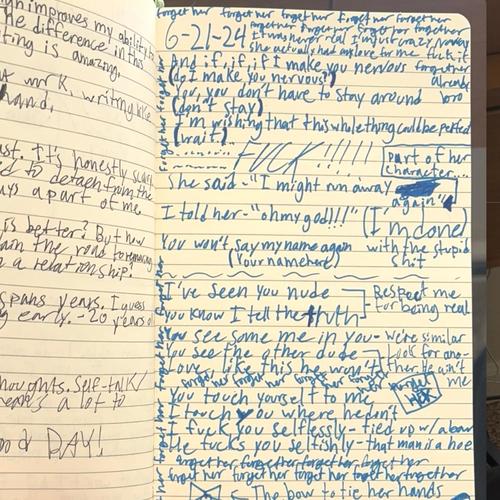 ign improves my ability to
he difference in this
ting is amazing.
t work, writing like
hand.
ust. It's honestly
ed to detach from the
ays a part of me.
is better? But how
ain the road to
n a relationship?
spans years. I guess
g early. - 20 years
houghts. Self-talk/
means a lot to
od DAY!
forget her forget her forget her forget her forget her
6-21-24
it was never real I'm just crazy
she actually had no love for me fuck it
forget her already bro
And if, if, if I make you nervous
(do I make you nervous?)
You, you don't have to stay around
(don't stay)
I'm wishing that this whole thing could be
(wait)
FUCK!!!!!
part of her
character...
She said - "I might run away
again"
I told her - "oh my god!!!" (I'm done)
with the stupid
shit
You won't say my name again
(Your name here)
I've seen you nude
Respect me
You know I tell the truth
for being real
You see some me in you - We're similar
You see the other dude - Look for ano-
Love like this he won't - ther he ain't
me
forget her forget her forget her forget her
You touch yourself to me
forget
HER
I touch you where he don't
I fuck you selflessly - tied up w/ a bow
He fucks you selfishly - that man is a hoe
forget her forget her forget her forget her
forget her forget her forget her forget her
The bow to tie her hands